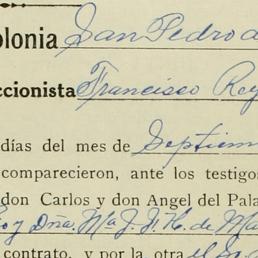 olonia San Pedro d
ccionista Francisco Rey
días del mes de Septiem
comparecieron, ante los testigos
don Carlos y don Angel del Pala
y Dña. Mª J. de Ma
contrato, y por la otra el